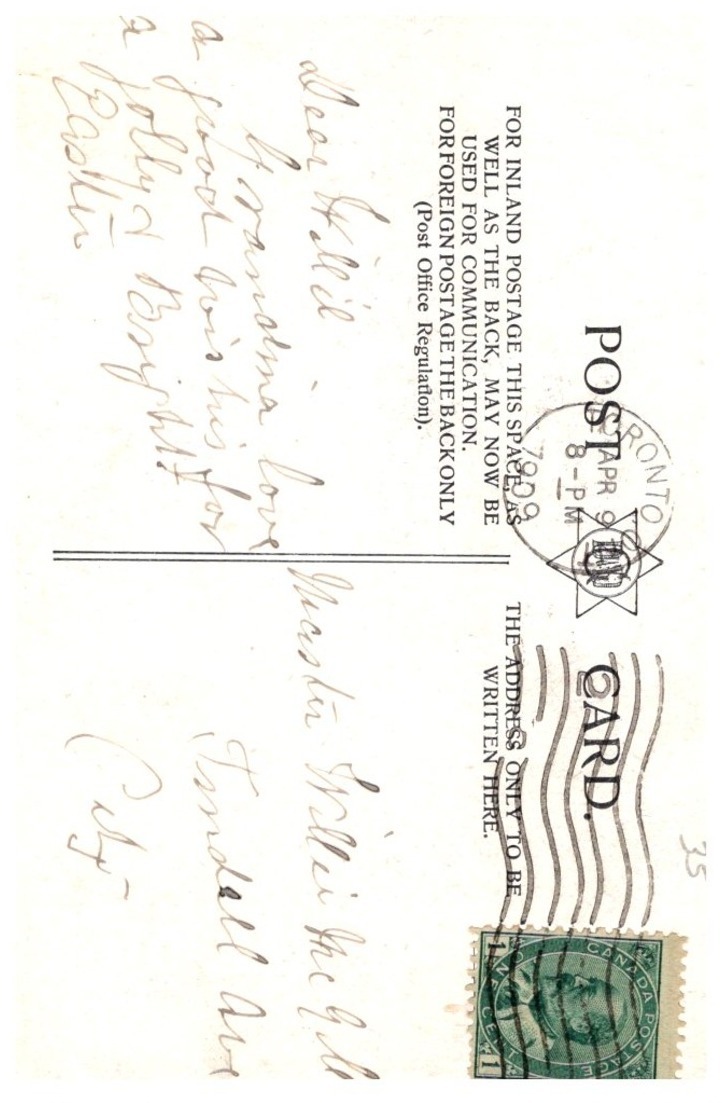 POST CARD.
TORONTO
APR 9
8-PM
1909
FOR INLAND POSTAGE THIS SPACE, AS
WELL AS THE BACK, MAY NOW BE
USED FOR COMMUNICATION.
FOR FOREIGN POSTAGE THE BACK ONLY
(Post Office Regulation).
THE ADDRESS ONLY TO BE
WRITTEN HERE.
35
CANADA POSTAGE
ONE CENT
1 1
Dear Willie
Grandma love
a good wishes for
a jolly & Bright
Easter
Master Willie McGill
Tyndall Ave
City